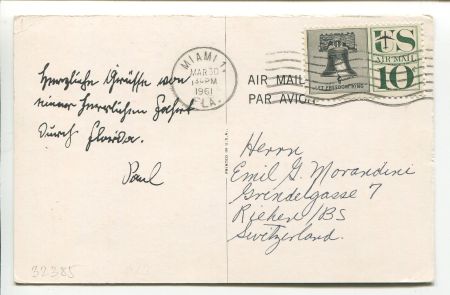 MIAMI
MAR 30
PM
1961
FLA.
US
AIR MAIL
10
LET FREEDOM RING
AIR MAIL
PAR AVION
Herzliche Grüsse von
einer herrlichen Fahrt
durch Florida.
Paul
PRINTED IN U.S.A.
Herrn
Emil G. Morandini
Grendelgasse 7
Riehen/BS
Switzerland.
32385